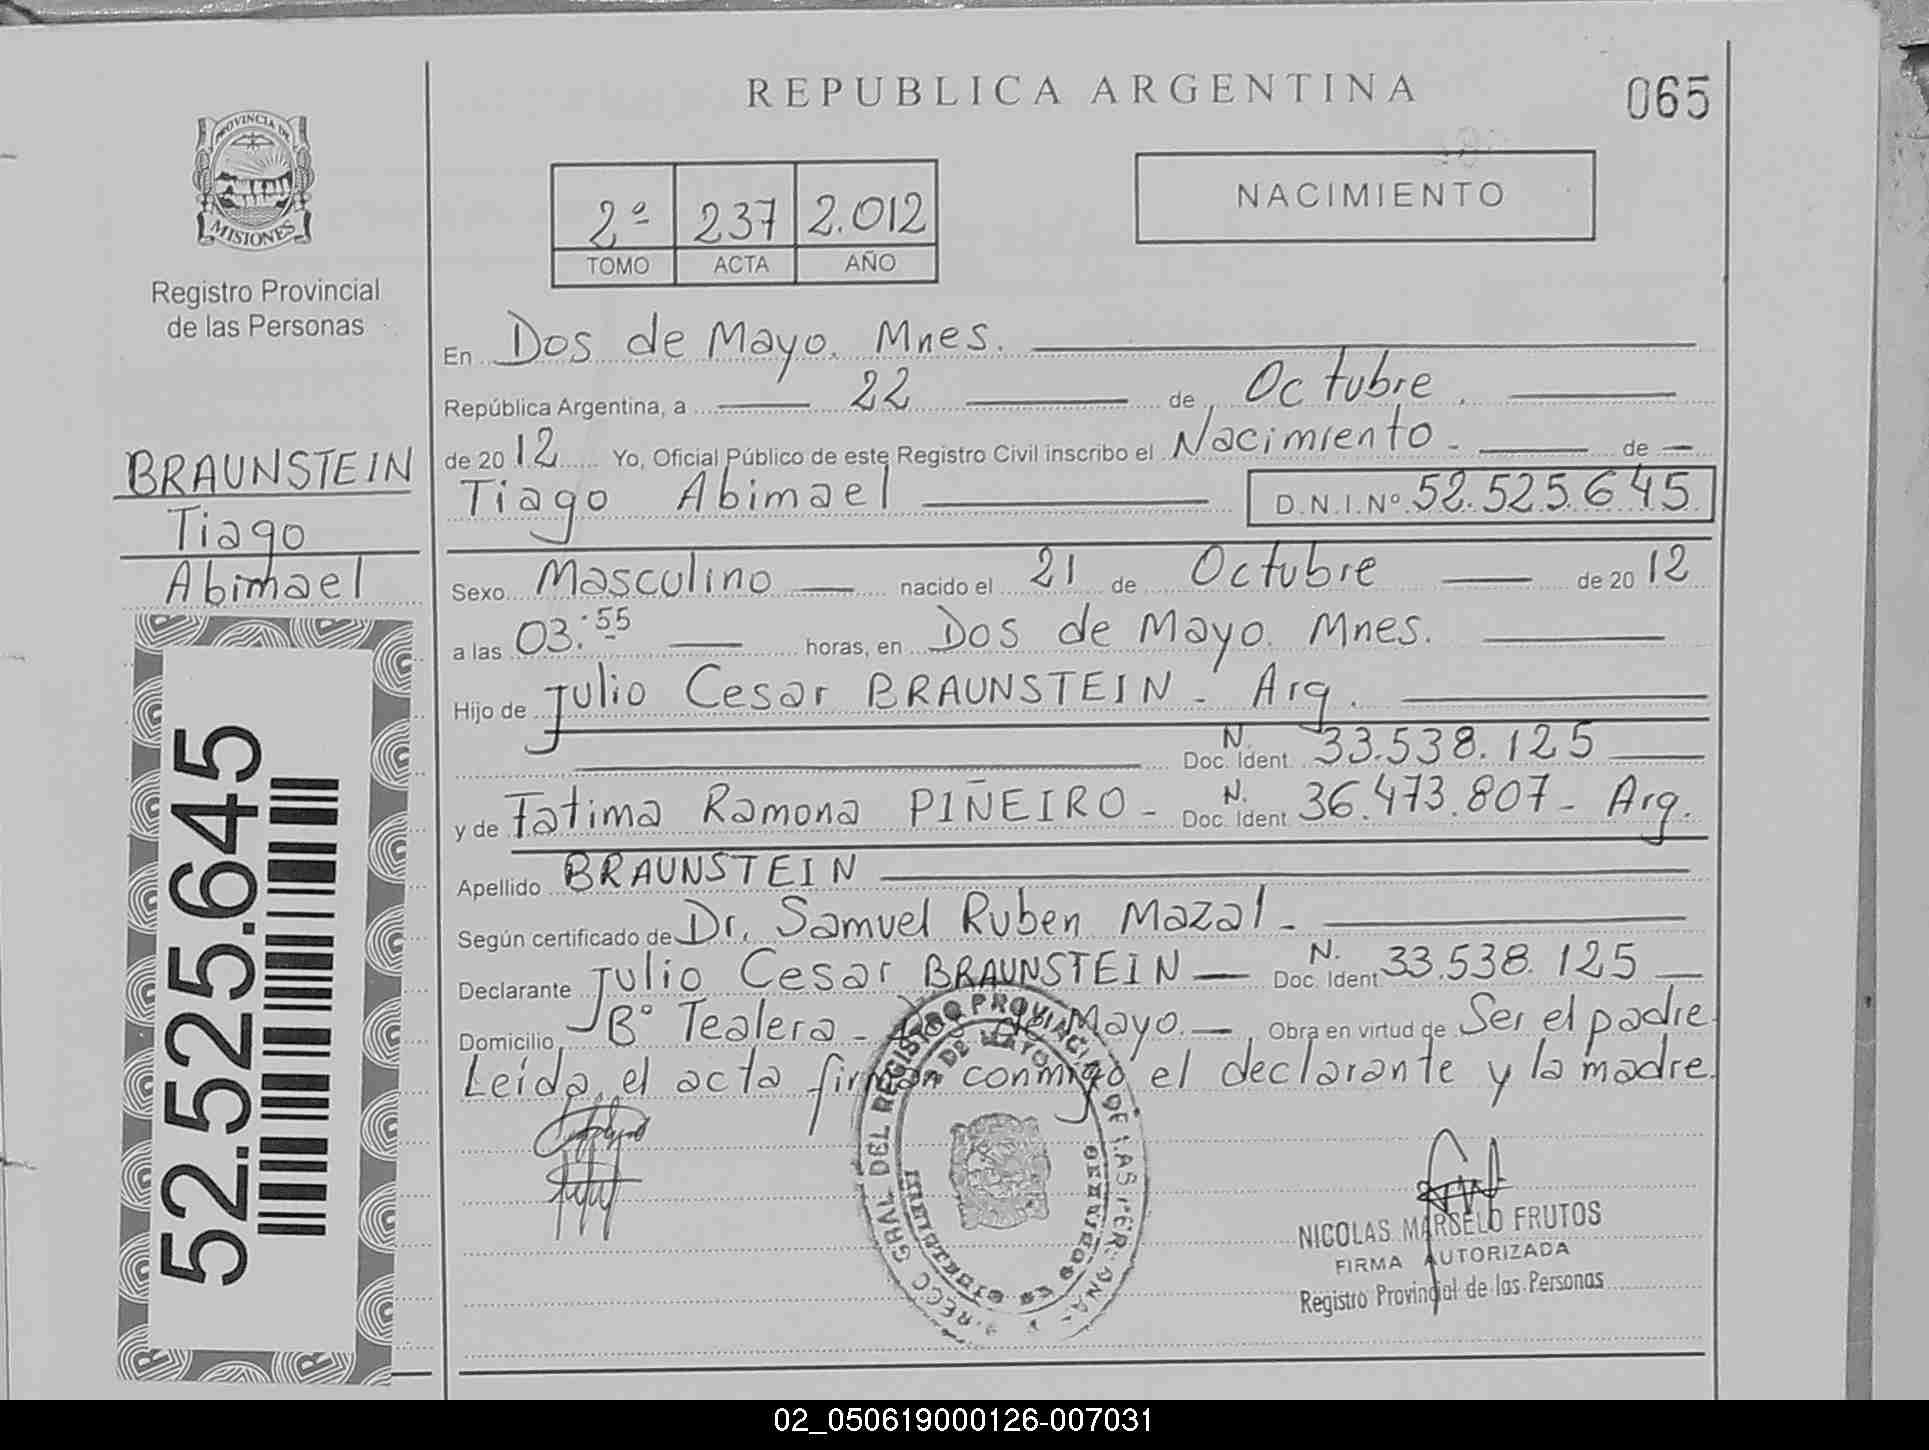 REPUBLICA ARGENTINA
065
PROVINCIA DE
MISIONES
Registro Provincial
de las Personas
2º 237 2.012
TOMO ACTA AÑO
NACIMIENTO
BRAUNSTEIN
Tiago
Abimael
52.525.645
En Dos de Mayo. Mnes.
República Argentina, a 22 de Octubre.
de 2012 Yo, Oficial Público de este Registro Civil inscribo el Nacimiento - de
Tiago Abimael D.N.I.Nº 52.525.645
Sexo Masculino nacido el 21 de Octubre de 2012
a las 03:55 horas, en Dos de Mayo. Mnes.
Hijo de Julio Cesar BRAUNSTEIN - Arg.
Doc. Ident. N. 33.538.125
y de Fatima Ramona PIÑEIRO - Doc. Ident. N. 36.473.807 - Arg.
Apellido BRAUNSTEIN
Según certificado de Dr. Samuel Ruben Mazal -
Declarante Julio Cesar BRAUNSTEIN Doc. Ident. N. 33.538.125
Domicilio Bº Tealera - Dos de Mayo. Obra en virtud de Ser el padre
Leída el acta firman conmigo el declarante y la madre.
GRAL DEL REGISTRO PROVINCIAL DE LAS PERSONAS
DE MAYO
NICOLAS MARSELO FRUTOS
FIRMA AUTORIZADA
Registro Provincial de las Personas
02_050619000126-007031